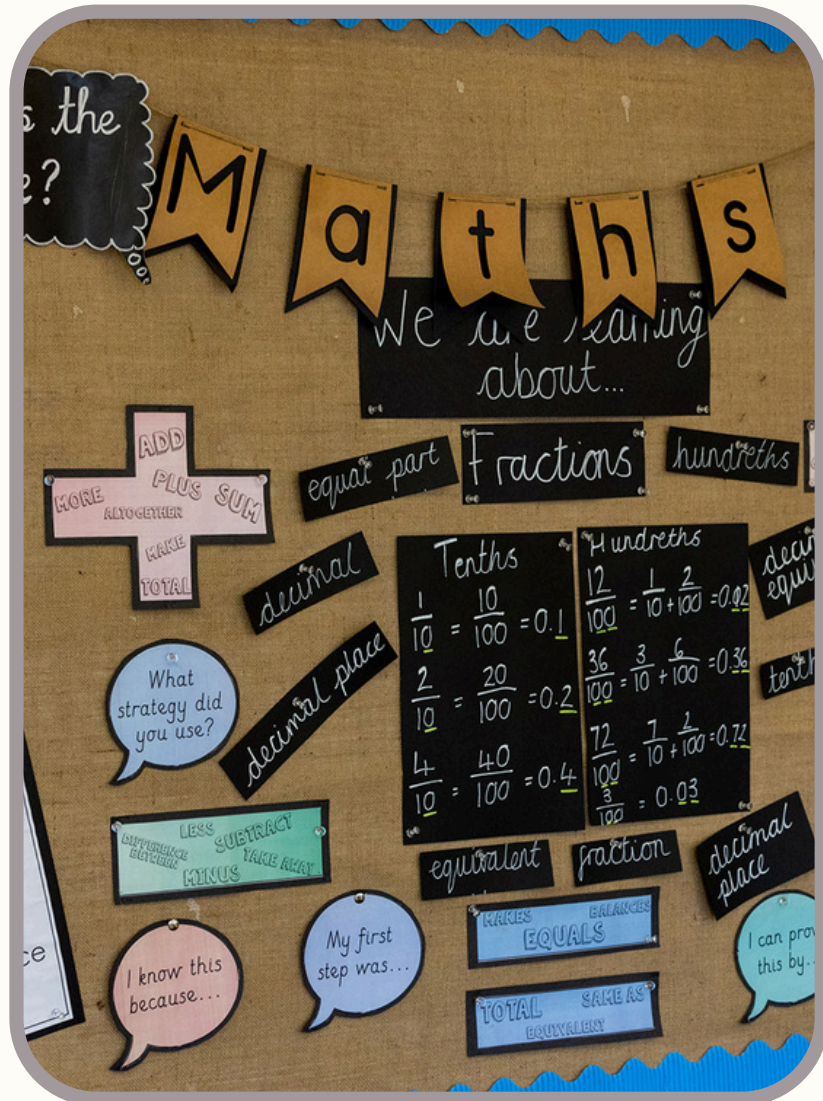 s the
e?
Maths
We are learning
about...
ADD
MORE PLUS SUM
ALTOGETHER
MAKE
TOTAL
equal part
Fractions
hundreths
decimal
decimal place
Tenths
1/10 = 10/100 = 0.1
2/10 = 20/100 = 0.2
4/10 = 40/100 = 0.4
Hundreths
12/100 = 1/10 + 2/100 = 0.02
36/100 = 3/10 + 6/100 = 0.36
72/100 = 7/10 + 2/100 = 0.72
3/100 = 0.03
equiv
tenth
What
strategy did
you use?
LESS SUBTRACT
DIFFERENCE
BETWEEN
TAKE AWAY
MINUS
equivalent
fraction
decimal
place
I know this
because...
My first
step was...
MAKES BALANCES
EQUALS
TOTAL SAME AS
EQUIVALENT
I can prov
this by..
ce